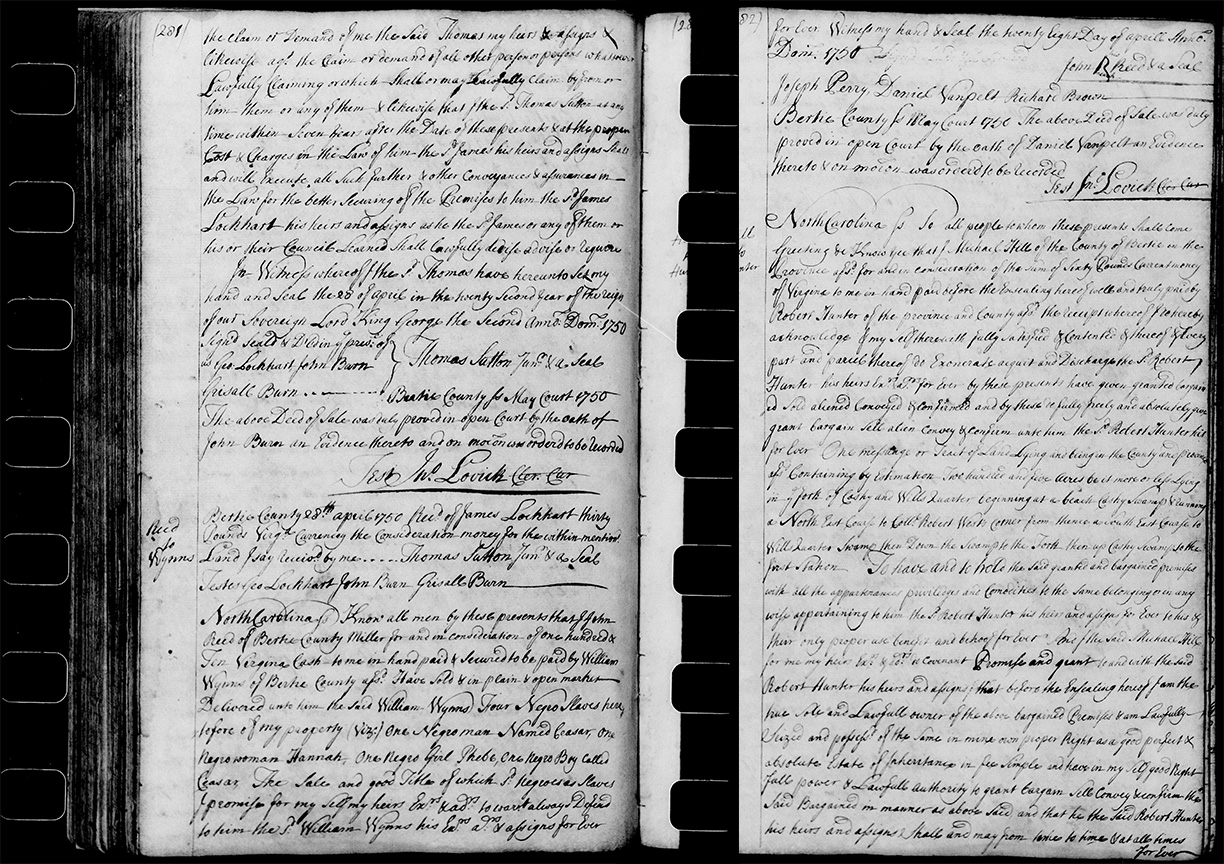 (281)
the Claim or Demand of me the Said Thomas my heirs & assigns &
likewise agt. the Claim or demand of all other person or persons whatsoever
Lawfully Claiming or which Shall or may Lawfully Claim by from or
him them or any of them & likewise that I the Sd. Thomas Sutton at any
time within Seven Years after the Date of these presents & at the proper
Cost & Charges in the Law of him the Sd. James his heirs and assigns Shall
and will Execute all Such further & other Conveyances & assurances in
the Law for the better Securing of the Premises to him the Sd. James
Lockhart his heirs and assigns as he the Sd. James or any of them or
his or their Council Learned Shall Lawfully devise advise or require
In Witness whereof I the Sd. Thomas have hereunto Set my
hand and Seal the 28 of April in the twenty Second Year of the reign
of our Sovereign Lord King George the Second Anno. Dom. 1750
Sign'd Seal'd & Dd. in ye pres: of
us Geo Lockhart John Burn } Thomas Sutton Junr. & a Seal
Grisall Burn
Beartie County Ss May Court 1750
The above Deed of Sale was duly proved in open Court by the oath of
John Burn an Evidence thereto and on mocon was ordered to be recorded
Test Jno. Lovick Cler. Cur
Bertie County 28th april 1750 Recd of James Lockhart thirty
Pounds Virga. Currency the Consideration money for the within mention'd
Land I say Receivd. by me Thomas Sutton Junr. & a Seal
Testes Geo Lockhart John Burn Grisall Burn
Reed
to
Wynns
North Carolina Ss Know all men by these presents that I John
Reed of Bertie County Miller for and in consideration of one hundred &
Ten Virgina Cash to me in hand paid & Secured to be paid by William
Wynns of Bertie County afsd. Have Sold & in plain & open market
Delivered unto him the Said William Wynns Four Negro Slaves here
tofore of my property (Viz:) One Negro man Named Ceasar, One
Negro woman Hannah, One Negro Girl Phebe, One Negro Boy Called
Ceasar The Sale and good Title of which Sd. Negroes as Slaves
I promise for my Self my heirs Exrs & adrs. to warrt. always Defend
to him the Sd. William Wynns his Exrs adrs & assigns for Ever
82)
for Ever Witness my hand & Seal the twenty Eight Day of aprill Anno.
Dom. 1750
John R Reed & a Seal
Joseph Perry Daniel Vanpelt Richard Brown
Bertie County Ss May Court 1750 The above Deed of Sale was duly
proved in open Court by the oath of Daniel Vanpelt an Evidence
thereto & on mocon was ordered to be recorded
Test Jno. Lovick Cler Cur
ll
to
nter
North Carolina Ss To all people to whom these presents Shall come
Greeting &c Know yee that I Michael Hill of the County of Bertie in the
Province afsd. for and in consideration of the Sum of Sixty Pounds Current money
of Virginia to me in hand paid before the Ensealing hereof well and truly paid by
Robert Hunter of the province and County afsd. the receipt whereof I do hereby
acknowledge & my Self therewith fully Satisfied & Contented & thereof & Every
part and parcel thereof do Exonerate acquit and Discharge the Sd. Robert
Hunter his heirs Exrs. &c for Ever by these presents have given granted bargain
ed Sold aliened Conveyed & Confirmed and by these do fully freely and absolutely give
grant bargain Sell alien Convey & Confirm unto him the Sd. Robert Hunter his
for Ever One messuage or Tract of Land Lying and being in the County and province
afsd. Containing by Estimation Two hundred and five Acres be it more or less Lying
in ye fork of Cashy and Wills Quarter beginning at a beach Cashy Swamp & running
a North East Course to Collo. Robert Wests Corner from thence a South East Course to
Wills Quarter Swamp then Down the Swamp to the Fork then up Cashy Swamp to the
first Station To have and to hold the Said granted and bargained premises
with all the appurtenances priviledges and Comodities to the Same belonging or in any
wise appertaining to him the Sd. Robert Hunter his heirs and assigns for Ever to his &
their only proper use benefit and behoof for Ever And I the Said Michaell Hill
for me my heirs Exrs. & Adrs. do Covenant Promise and grant to and with the Said
Robert Hunter his heirs and assigns that before the Ensealing hereof I am the
true Sole and Lawfull owner of the above bargained Premises & am Lawfully
Seized and possesd. of the Same in mine own proper Right as a good perfect &
absolute Estate of Inheritance in fee Simple and have in my Self good Right
full power & Lawfull Authority to grant bargain Sell Convey & confirm the
Said Bargained in manner as above Said and that he the Said Robert Hunter
his heirs and assigns Shall and may from time to time & at all times
for Ever